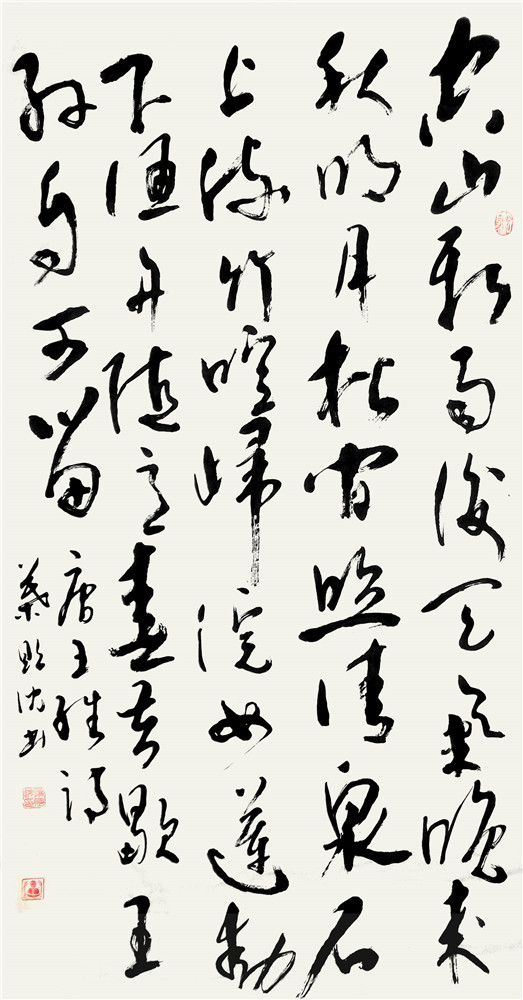 空山新雨後天氣晚來
秋明月松間照清泉石
上流竹喧歸浣女蓮動
下漁舟隨意春芳歇王
孫自可留
唐王維詩
葉 書